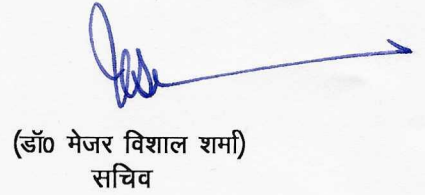 (डॉ0 मेजर विशाल शर्मा)
सचिव